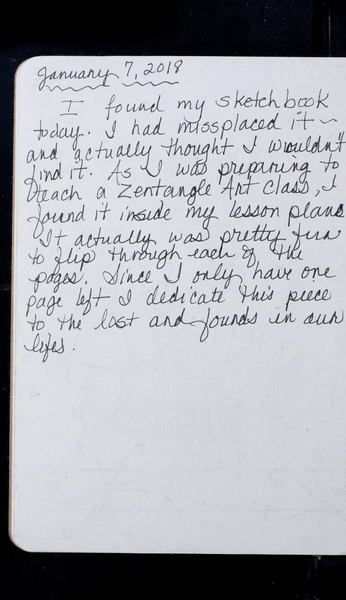 January 7, 2018
I found my sketchbook
today. I had missplaced it ~
and actually thought I wouldn't
find it. As I was preparing to
teach a Zentangle Art Class, I
found it inside my lesson plans
It actually was pretty fun
to flip through each of the
pages. Since I only have one
page left I dedicate this piece
to the lost and founds in our
lifes.